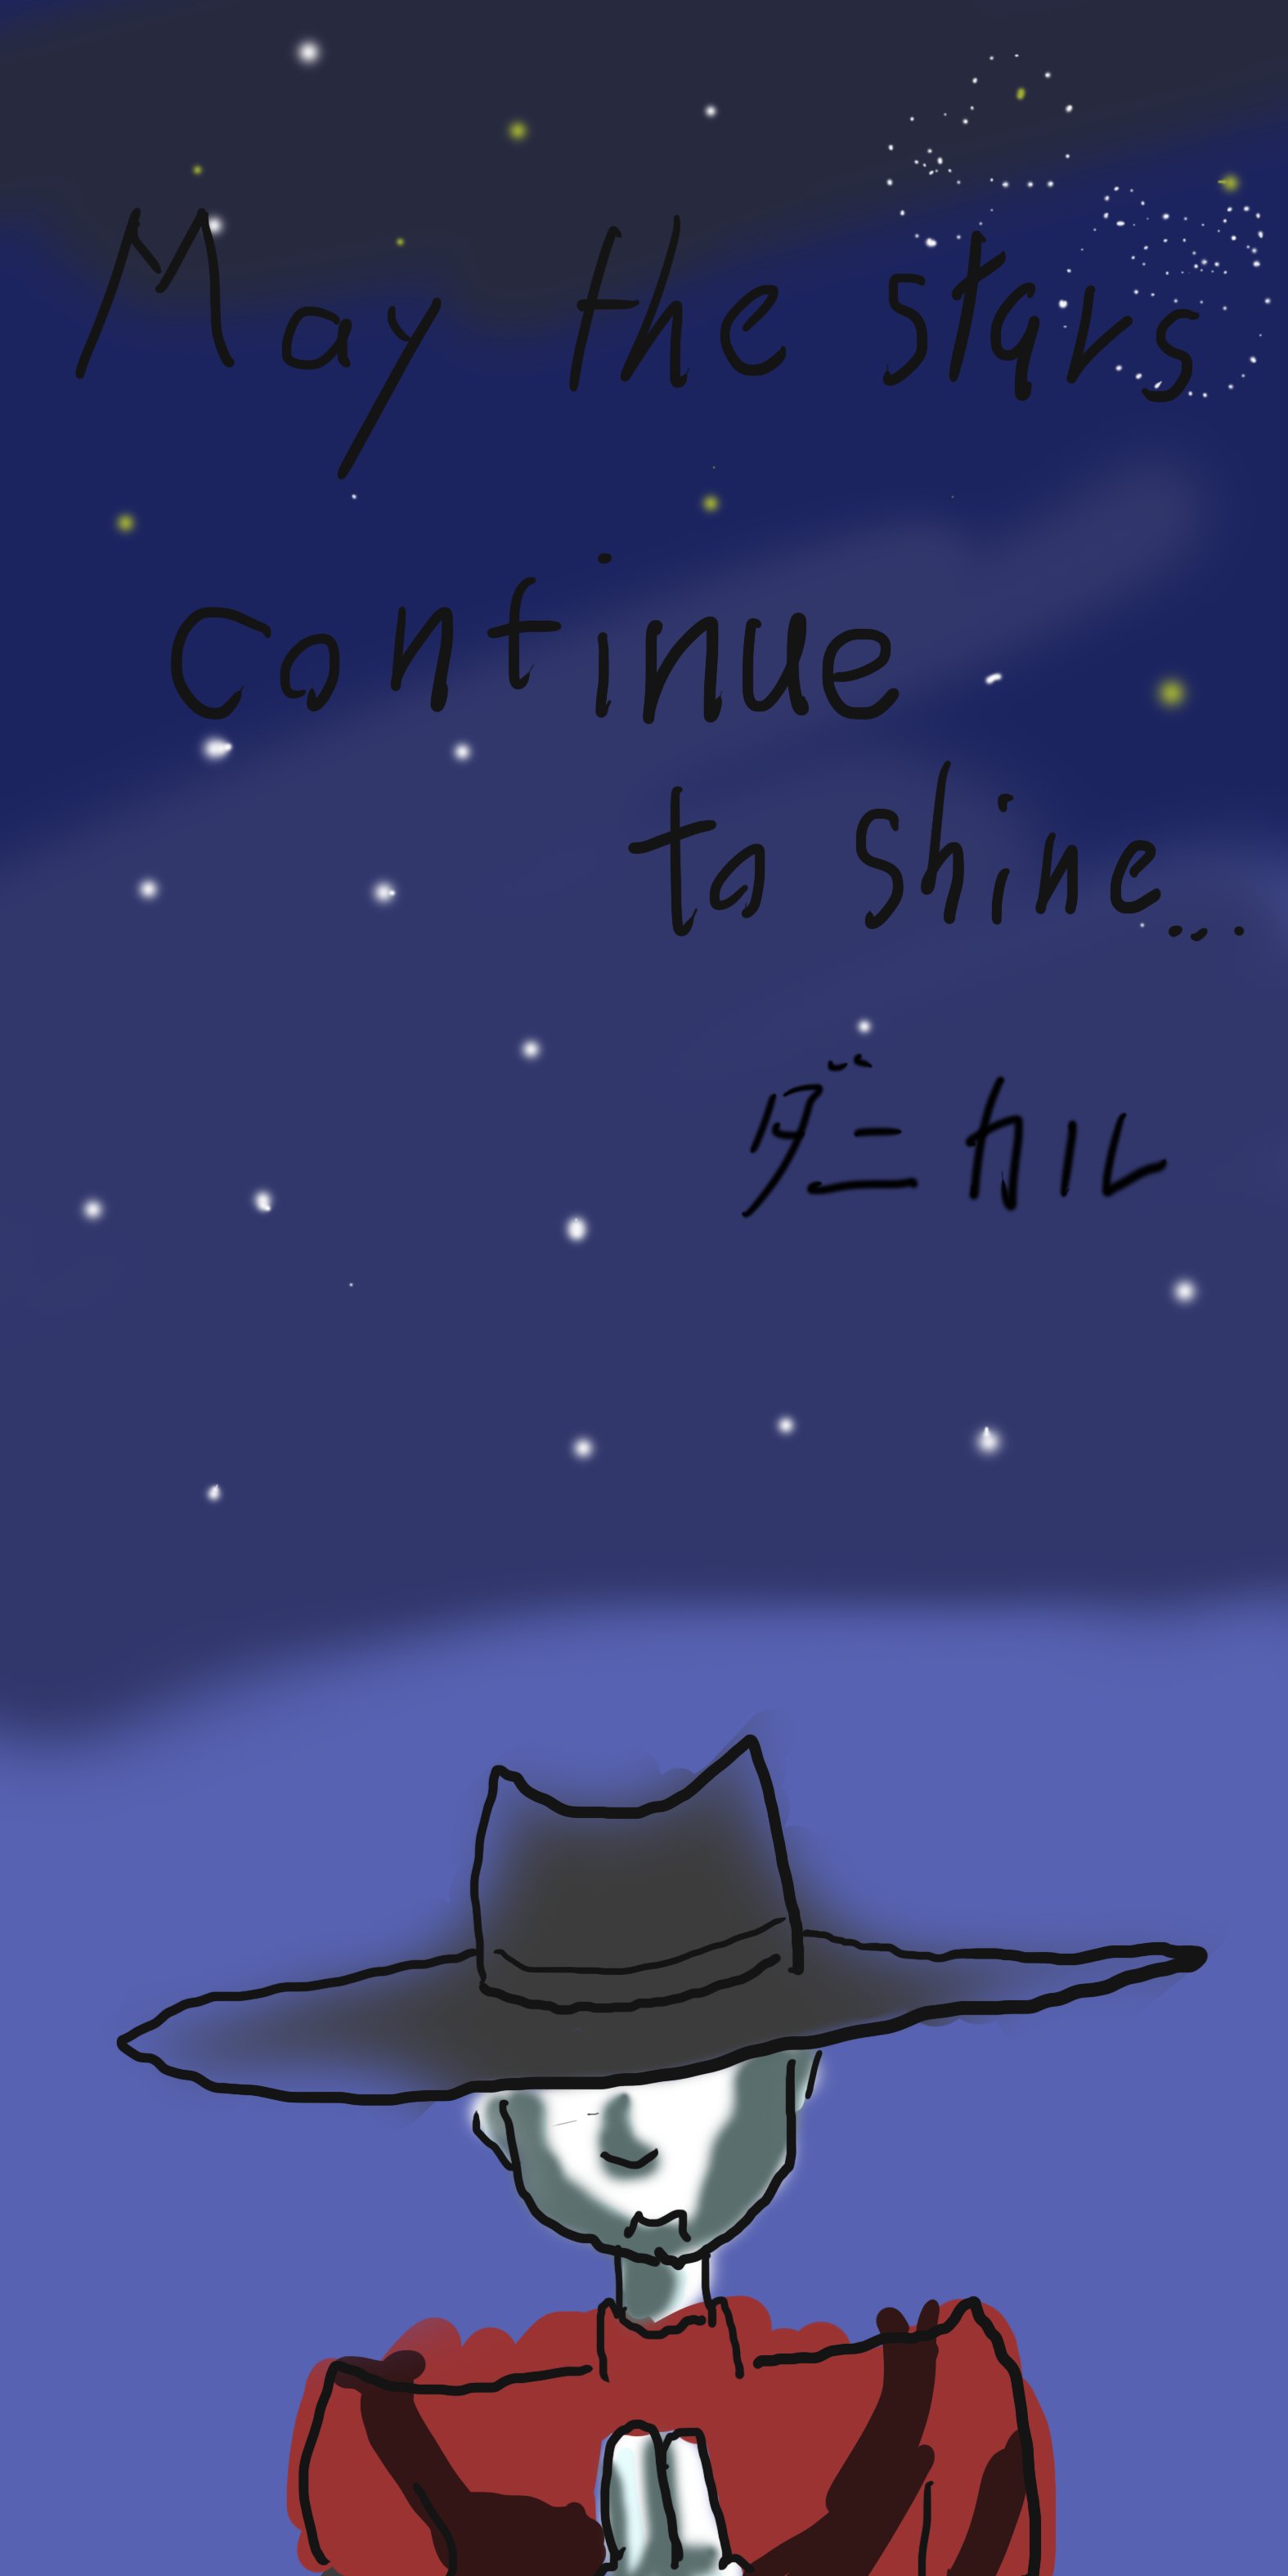 May the stars
continue
to shine...
ダニカル